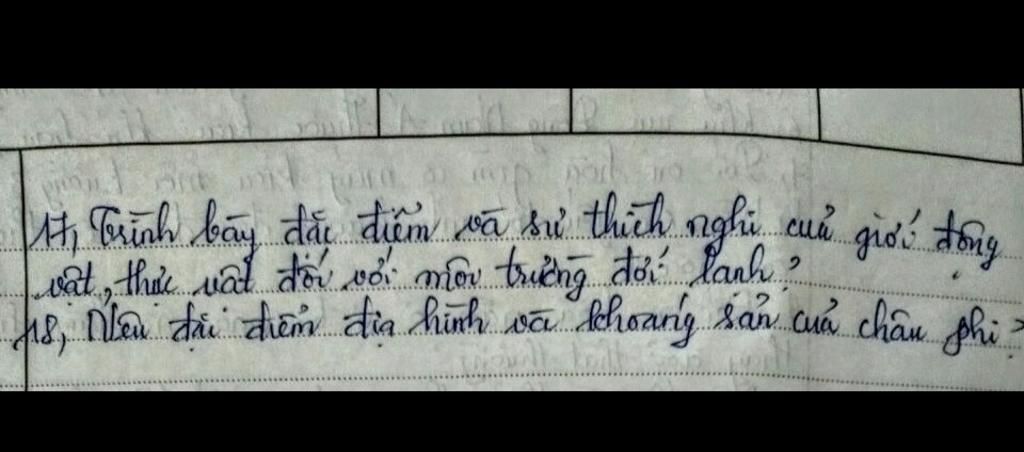 17, Trình bày đặc điểm và sự thích nghi của giới động
vật, thực vật đối với môi trường đới lạnh?
18, Nêu đặc điểm địa hình và khoáng sản của châu phi?